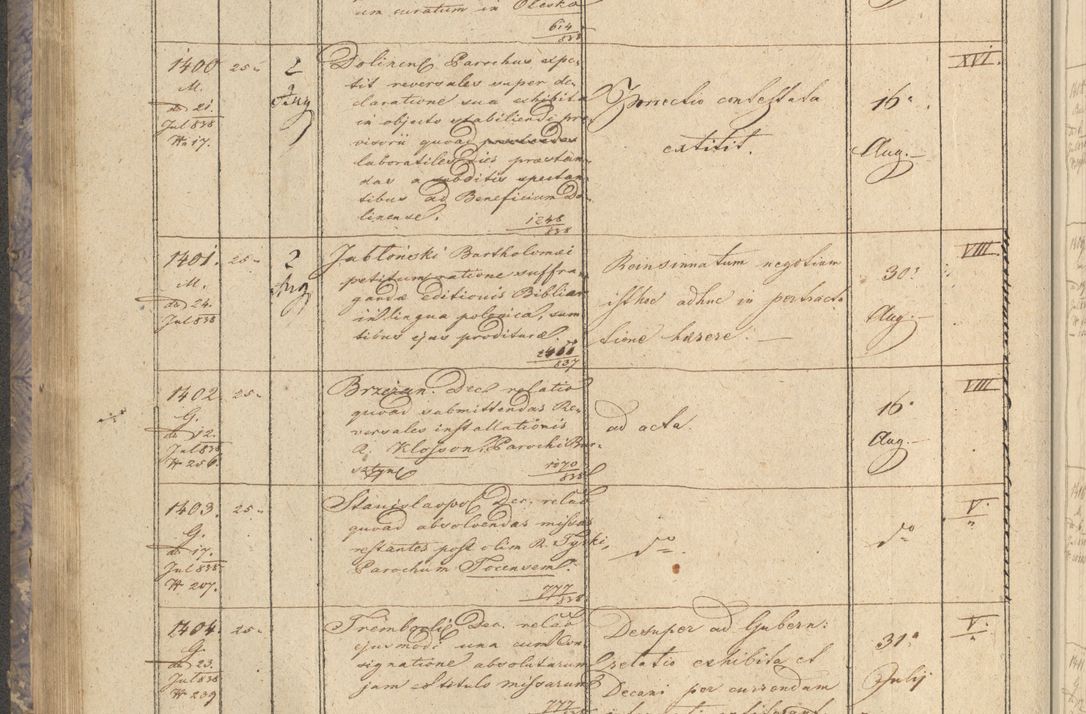 um curatum in Olesko
614
838
1400
M.
de 21.
Jul 838
N. 17.
25
2
Aug
Dolinens Parochus expe-
tit reversales super de-
claratione sua exhibita
in objecto stabiliendi pro-
visorii quoad
laboratiles dies praestan-
das a subditis spectan-
tibus ad Beneficium Do-
linense.
1248
838
contestata
extitit.
16a
Aug.
XVI.
1401.
M.
de 24.
Jul 838
25
2
Aug
Jabłoński Bartholomaei
petitum ratione suffra-
gandae editionis Bibliae
in lingua polonica, sum-
tibus ejus proditurae.
837
negotium
isthoc adhuc in pertracta-
tione haesere.
30a
Aug.
VIII.
1402.
G.
de 12.
Jul 838
N 256.
25
Brzeżan. Dec. relatio
quoad submittendas Re-
versales installationis
R. Klosson, Parochi Bur-
sztyn
1070
838
ad acta.
16a
Aug.
VIII
1403.
G.
de 17.
Jul 838
N 207.
25
Stanislaopol Dec. relatio
quoad absolvendas missas
restantes post olim R. Tyski,
Parochum Tocensem.
777
838
do
do
V.
1404.
G.
de 23.
Jul 838
N 239
25
Trembovl. Dec. relatio
ejusmodi una cum Con-
signatione absolutarum
jam e titulo missarum
777
Desuper ad Gubern:
relatio exhibita et
Decani per currendam
31a
Julij
V.